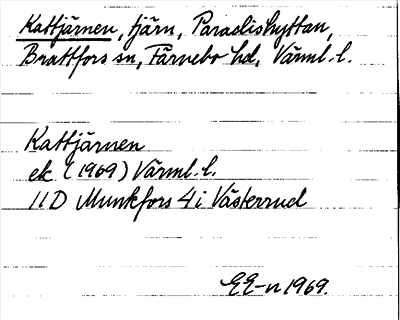 Kattjärnen, tjärn, Paradishyttan,
Brattfors sn, Färnebo hd, Värml. l.
Kattjärnen
ek (1969) Värml. l.
11D Munkfors 4i Västerrud
EE-n 1969.